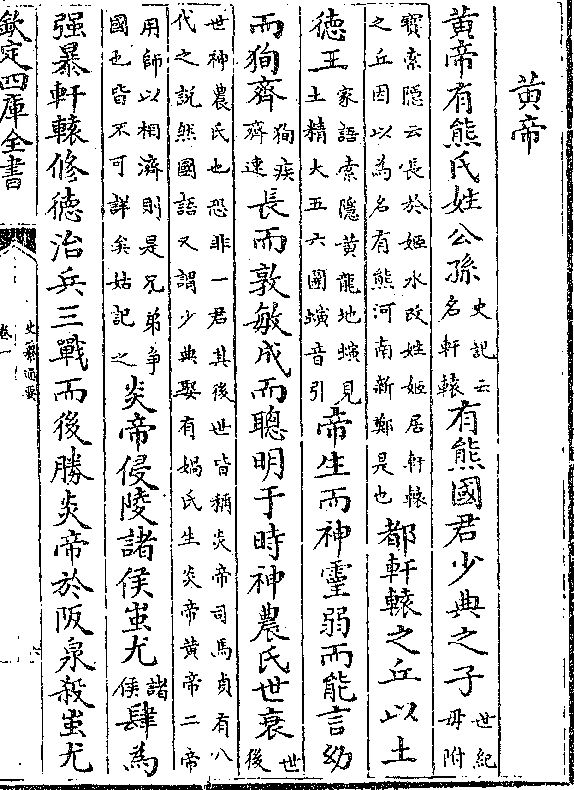 黄帝
黄帝有熊氏姓公孫史記云名軒轅有熊國君少典之子世紀母附
寶索隠云長於姬水改姓姬居軒轅之丘因以為名有熊河南新鄭是也都軒轅之丘以土
徳王家語索隠黄龍地螾見土精大五六圍螾音引帝生而神靈弱而能言幼
而狥齊狥疾齊速長而敦敏成而聰明于時神農氏世衰世後
世神農氏也恐非一君其後世皆稱炎帝司馬貞有八代之說然國語又謂少典娶有媧氏生炎帝黄帝二帝
用師以相濟則是兄弟爭國也皆不可詳矣姑記之炎帝侵陵諸侯蚩尤諸侯肆為
强暴軒轅修徳治兵三戰而後勝炎帝於阪泉殺蚩尤
欽定四庫全書
史纂通要
卷一